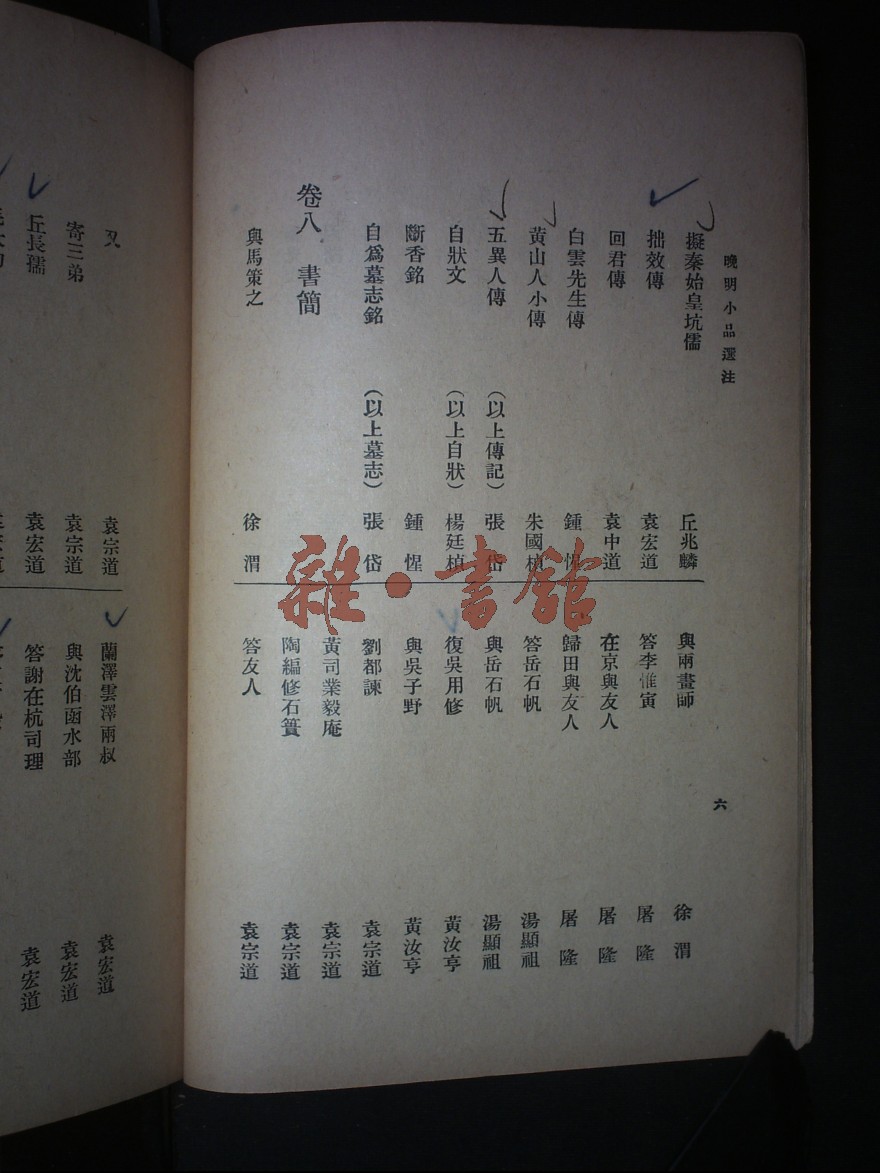 晚明小品選注
六
擬秦始皇坑儒 丘兆麟
拙效傳 袁宏道
回君傳 袁中道
白雲先生傳 鍾惺
黃山人小傳 朱國楨
五異人傳 (以上傳記) 張岱
自狀文 (以上自狀) 楊廷楨
斷香銘 鍾惺
自爲墓志銘 (以上墓志) 張岱
卷八 書簡
與馬策之 徐渭
與兩畫師 徐渭
答李惟寅 屠隆
在京與友人 屠隆
歸田與友人 屠隆
答岳石帆 湯顯祖
與岳石帆 湯顯祖
復吳用修 黃汝亨
與吳子野 黃汝亨
劉都諫 袁宗道
黃司業毅庵 袁宗道
陶編修石簣 袁宗道
答友人 袁宗道
又 袁宗道
寄三弟 袁宗道
丘長孺 袁宏道
蘭澤雲澤兩叔 袁宏道
與沈伯函水部 袁宏道
答謝在杭司理 袁宏道
雜·書館